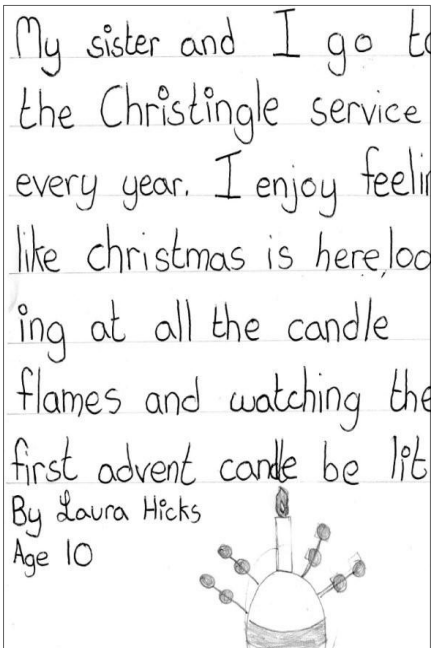 My sister and I go to
the Christingle service
every year. I enjoy feelin
like christmas is here, loo
ing at all the candle
flames and watching the
first advent candle be lit
By Laura Hicks
Age 10